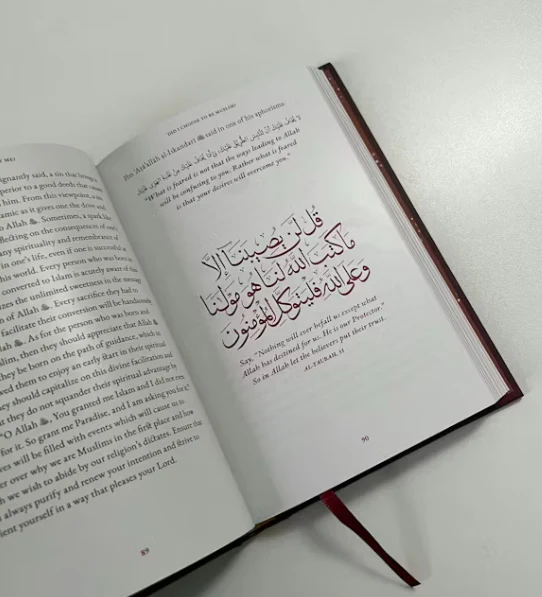 ME?
gnantly said, a sin that
perior to a good deeds that
him. From this viewpoint, a
amic as it gives one the drive and
o Allah ﷻ. Sometimes, a spark like
flecting on the consequences of one's
any spirituality and remembrance of
in one's life, even if one is successful
this world. Every person who was born
converted to Islam is acutely aware of this
zes the unlimited sweetness to the message
n of Allah ﷻ. Every sacrifice they had to
facilitate their conversion will be handsomely
lah ﷻ. As for the person who was born and
slim, then they should appreciate that Allah ﷻ
y be born on the path of guidance, which
wed them to enjoy an early start in their spiritual
ey should capitalize on this divine facilitation and
t they do not squander their spiritual advantage by
"O Allah ﷻ, You granted me Islam and I did not
for it. So grant me Paradise, and I am asking you be it."
ves will be filled with events which will cause us to
er over why we are Muslims in the first place and how
h we wish to abide by our religion's dictates. Ensure the
always purify and renew your intention and thrive to
ient yourself in a way that pleases your Lord.
89
DID I CHOOSE TO BE MUSLIM?
Ibn 'Ata'allah al-Iskandari said in one of his aphorisms:
لا يخاف عليك أن تلتبس الطرق عليك، وإنما يخاف عليك من غلبة الهوى عليك
"What is feared is not that the ways leading to Allah
will be confusing to you; Rather what is feared
is that your desires will overcome you."
قُل لَّن يُصِيبَنَا إِلَّا
مَا كَتَبَ اللَّهُ لَنَا هُوَ مَوْلَانَا
وَعَلَى اللَّهِ فَلْيَتَوَكَّلِ الْمُؤْمِنُونَ
Say, "Nothing will ever befall us except what
Allah has destined for us. He is our Protector."
So in Allah let the believers put their trust.
AL-TAUBAH, 51
90